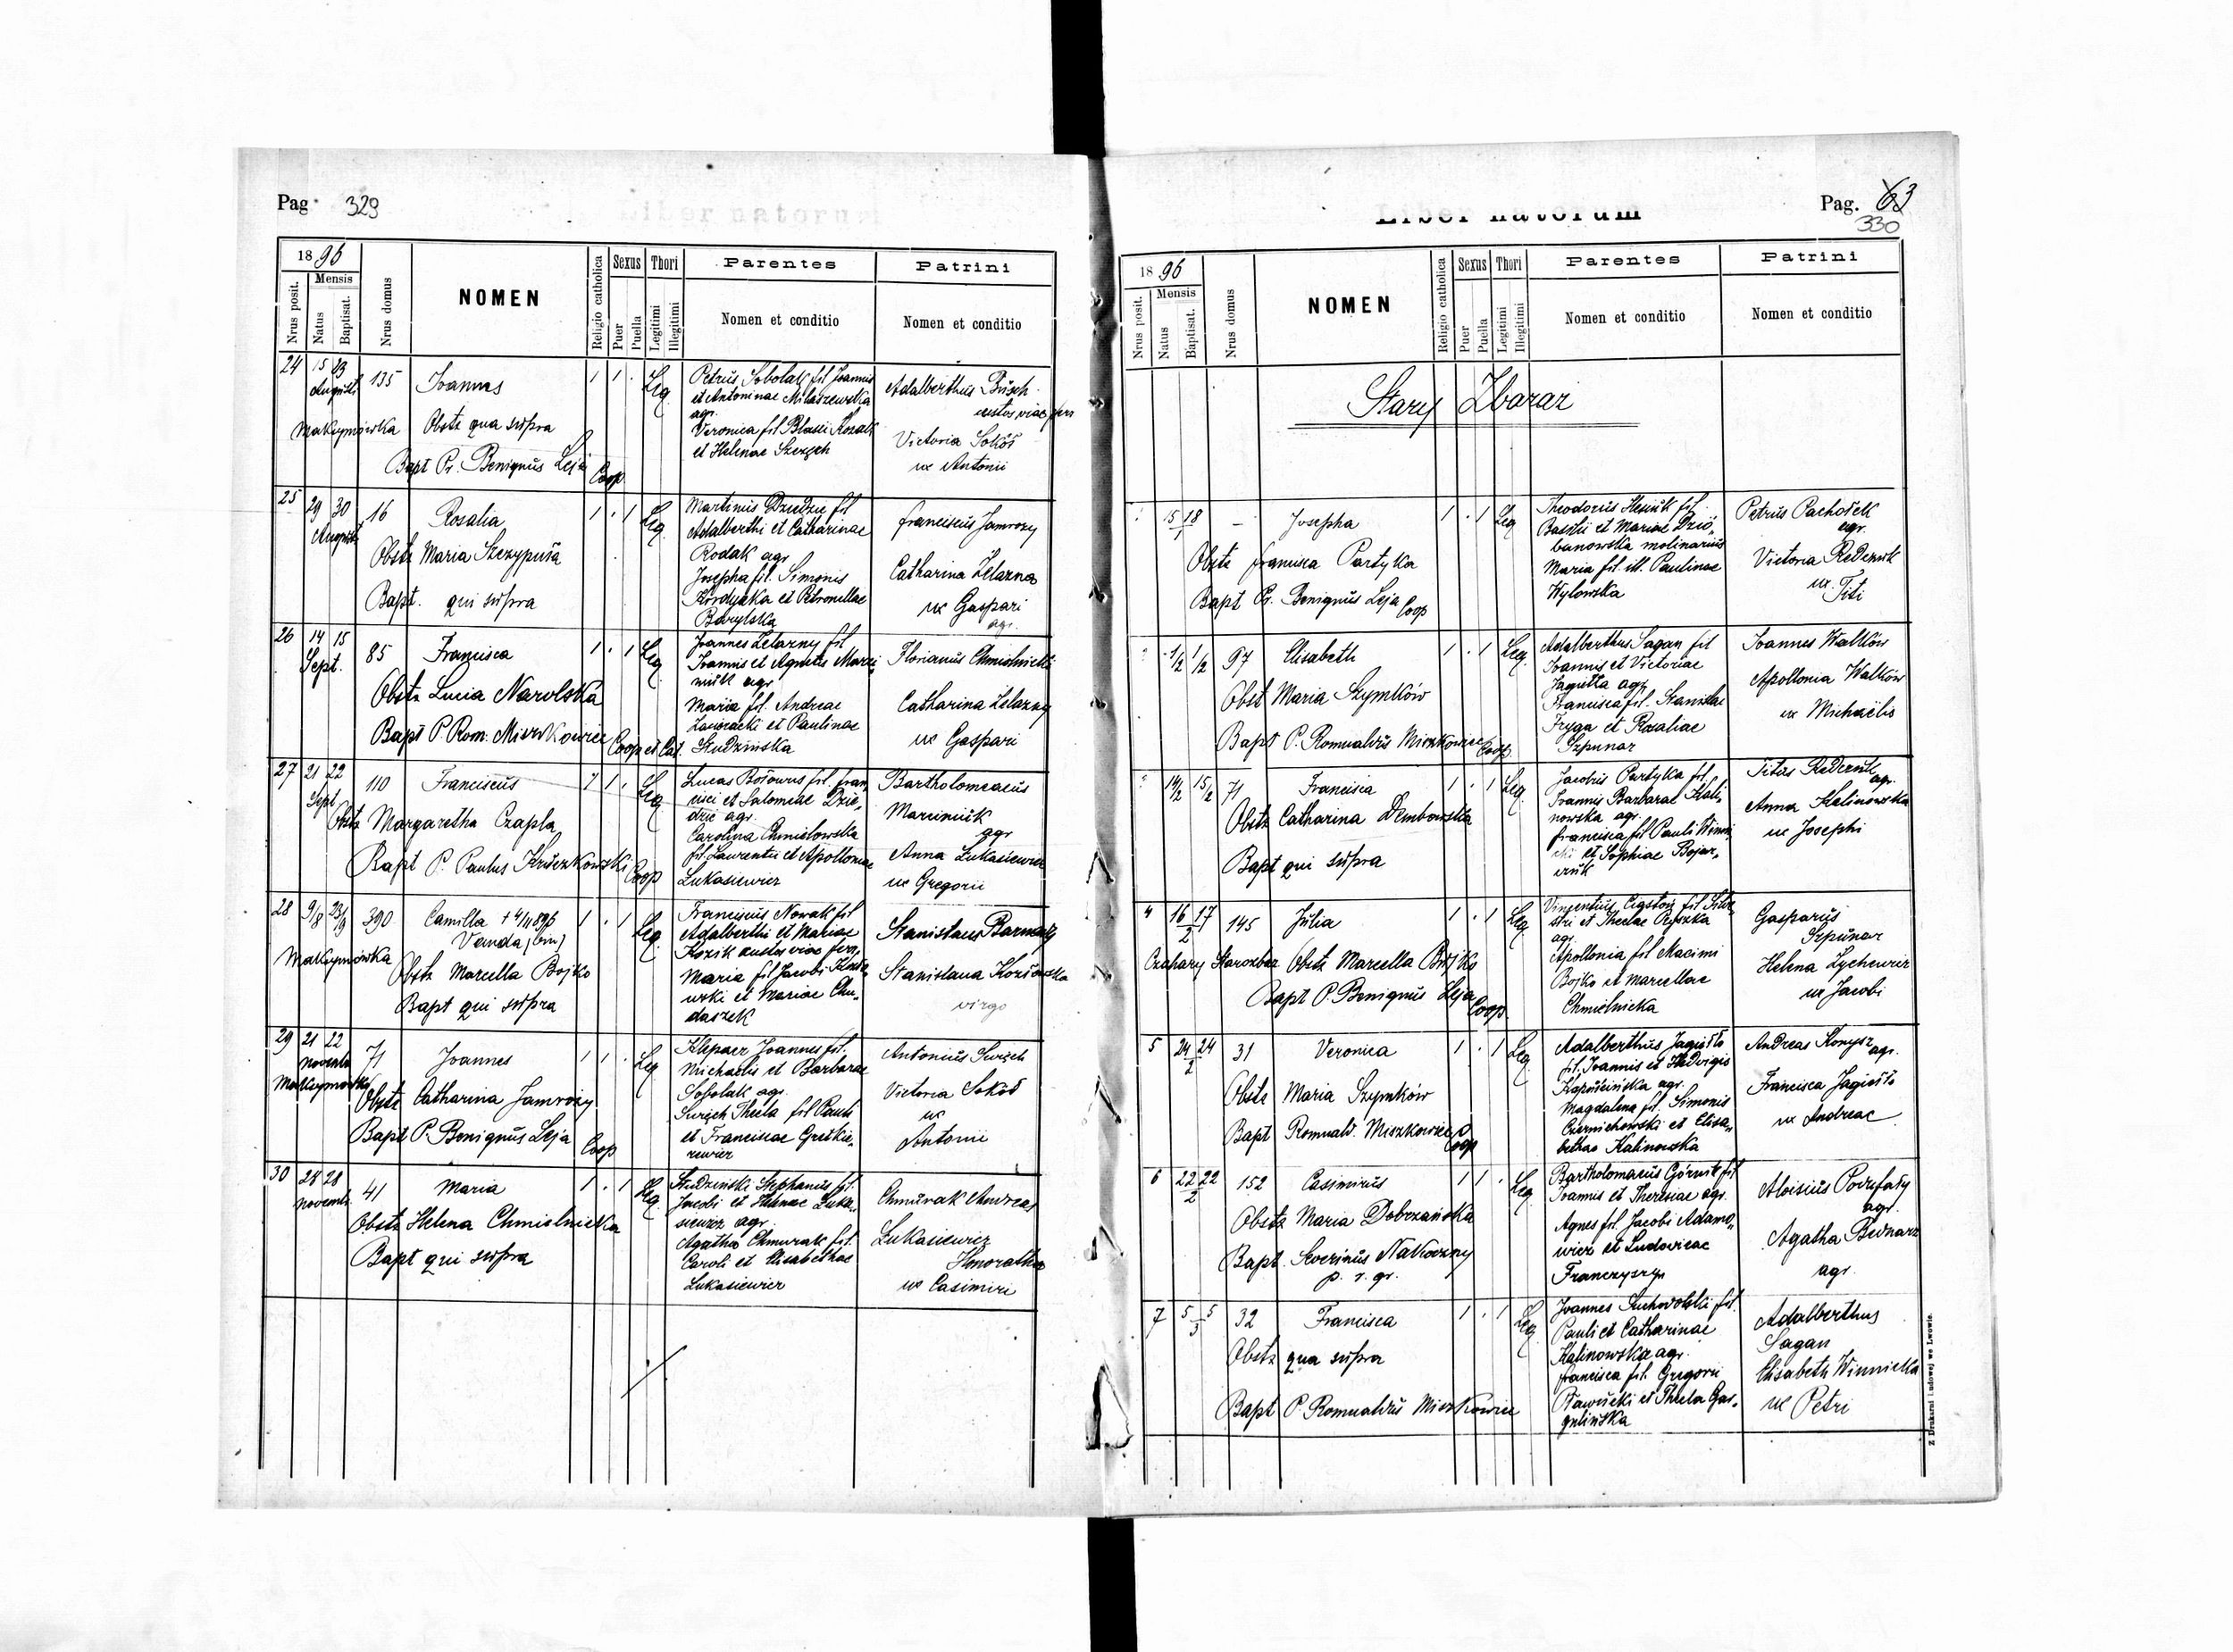 Pag 329
Liber natorum
1896
Mensis
Nrus posit.
Natus
Baptisat.
Nrus domus
NOMEN
Religio catholica
Sexus
Puer
Puella
Thori
Legitimi
Illegitimi
Parentes
Nomen et conditio
Patrini
Nomen et conditio
24 15 23 135 Joannes 1 1 . Leg Petrus Sobolak fil Joannis Adalberthus Busch
Augusti et Antoninae Milaszewska custos viae
agr.
Maksymówka Obste qua supra Veronica fil. Blasii Kozak Victoria Sokół
et Helenae Szezych ux Antonii
Bapt Pr. Benignus Leja Coop
25 29 30 16 Rosalia 1 . 1 Leg Martinus Dziedzic fil Franciscus Jamrozy
Augusti Adalberthi et Catharinae
Obste Maria Szezypuła Rodak agr
Josepha fil. Simonis Catharina Zelazna
Bapt. qui supra et Petronellae ux Gaspari
Barylska agr.
26 14 15 85 Francisca 1 . 1 Leg Joannes Zelazny fil Florianus Chmielnicki
Sept. Joannis et Agnetis Marci„
niuk agr
Obste Lucia Narolska Maria fil. Andreae Catharina Zelazny
et Paulinae
Bapt P. Rom. Miszkowicz Coop et Cat. Studzińska ux Gaspari
27 21 22 110 Franciscus 1 1 . Leg fil. Fran„ Bartholomaeus
Sept cisci et Salomeae Dzie„
Obste Margaretha Czapla dzic agr. Marciniuk
Carolina Chmielowska agr
fil. Laurentii et Apolloniae Anna Łukasiewicz
Bapt P. Paulus Kruszkowski Coop Łukasiewicz ux Gregorii
28 9/8 23/9 390 Camilla + 4/11 1896 1 . 1 Leg Franciscus Nowak fil Stanislaus
Vanda (bin) Adalberthi et Mariae
Maksymówka Kozik custos viae ferr.
Obste Marcella Bojko Maria fil Jacobi Stanislava
wski et Mariae Chu„
Bapt qui supra daszek virgo
29 21 22 71 Joannes 1 1 . Leg Klepacz Joannes fil. Antonius
Novemb Michaelis et Barbarae
Maksymówka Obste Catharina Jamrozy Sobolak agr. Victoria Sokół
Thecla fil Pauli ux
Bapt P. Benignus Leja Coop et Franciscae Antonii
30 28 28 41 Maria 1 . 1 Leg Studzinski Stephanus fil. Chmurak Andreas
Novemb Jacobi et Helenae Łuka„
Obste Helena Chmielnicka siewicz agr. Łukasiewicz
Agatha Chmurak fil. Honoratha
Bapt qui supra Caroli et Elisabethae
Łukasiewicz ux Casimiri
Liber natorum
Pag. 63
330
1896
Mensis
Nrus posit.
Natus
Baptisat.
Nrus domus
NOMEN
Religio catholica
Sexus
Puer
Puella
Thori
Legitimi
Illegitimi
Parentes
Nomen et conditio
Patrini
Nomen et conditio
Stary Zbaraż
15 18/1 – Josepha 1 . 1 Leg Theodorus fil. Petrus Pachołek
Basilii et Mariae Dzió„ agr.
Obste Francisca Partyka banowska molinarius
Maria fil. ill. Paulinae Victoria Redczuk
Bapt Pr. Benignus Leja Coop Wyłowska ux Titi
1/2 1/2 97 Elisabeth 1 . 1 Leg Adalberthus Sagan fil Joannes Walków
Joannis et Victoriae
Obst Maria Szymków Jagiełła agr. Apollonia Walków
Francisca fil. Stanislai
Fryga et Rosaliae ux Michaelis
Bapt P. Romualdus Miszkowicz Coop. Szpunar
14/2 15/2 71 Francisca 1 . 1 Leg Jacobus Partyka fil. Titus Redczuk
Joannis Barbarae Kali„ agr.
Obste Catharina Dembowska nowska agr. Anna Kalinowska
Francisca fil Pauli Winni„ ux Josephi
Bapt qui supra cki et Sophiae Bojar„
czuk
4 16 17/2 145 Julia 1 . 1 Leg Vincentius fil Silve„ Gasparus
stri et Theclae Szpunar
agr.
Czahary Starozbar Obste Marcella Bojko Apollonia fil Macimi Helena Zychewicz
Bojko et Marcellae
Bapt P. Benignus Leja Coop. Chmielnicka ux Jacobi
5 24 24/2 31 Veronica 1 . 1 Leg Adalberthus Jagiełło Andreas Konysz agr.
fil. Joannis et Hedvigis
Obste Maria Szymków agr. Francisca Jagiełło
Magdalena fil. Simonis
Bapt Romuald. Miszkowicz Coop Czernichowski et Elisa„ ux Andreae
bethae Kalinowska
6 22 22/2 152 Casimirus 1 1 . Leg Bartholomaeus Górnik fil Aloisius Podufały
Joannis et Theresiae agr. agr.
Obste Maria Dobrzańska Agnes fil. Jacobi Adamo„
wicz et Ludovicae Agatha Bednarz
Bapt Severinus Nakoczny Franczyszyn agr.
p. r. gr.
7 5 5/3 32 Francisca 1 . 1 Leg Joannes Suchowolski fil. Adalberthus
Pauli et Catharinae Sagan
Obste qua supra Kalinowska agr.
Francisca fil. Gregorii Elisabeth Winnicka
Bapt P. Romualdus Miszkowicz et Thecla Gas„ ux Petri
Z Drukarni Ludowej we Lwowie.